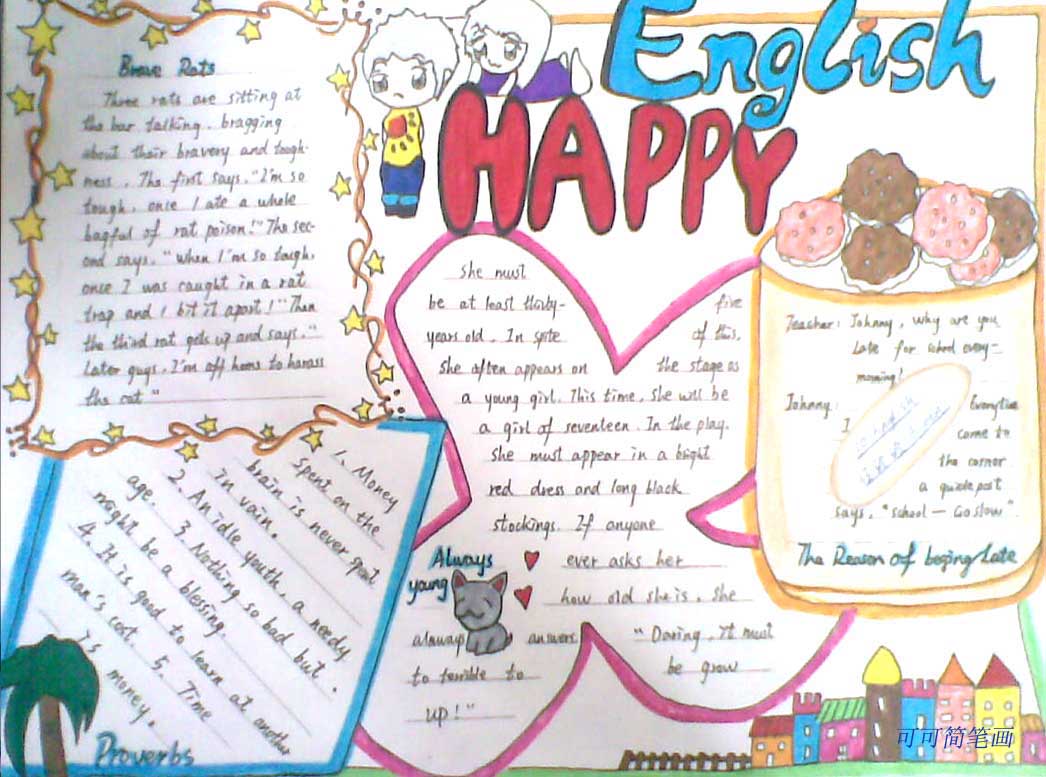 English
HAPPY
Brave Rats
Three rats are sitting at
the bar talking, bragging
about their bravery and tough-
ness. The first says, "I'm so
tough, once I ate a whole
bagful of rat poison!" The sec-
ond says, "When I'm so tough,
once I was caught in a rat
trap and I bit it apart!" Then
the third rat gets up and says, "
Later guys, I'm off home to harass
the cat."
1. Money
spent on the
brain is never spent
in vain.
2. An idle youth, a needy
age. 3. Nothing so bad but
might be a blessing.
4. It is good to learn at another
man's cost. 5. Time
is money.
Proverbs
she must
be at least thirty- five
years old. In spite of this,
she often appears on the stage as
a young girl. This time, she will be
a girl of seventeen. In the play,
she must appear in a bright
red dress and long black
stockings. If anyone
Always
young
ever asks her
how old she is, she
always answers "Daring, it must
to terrible to be grow
up!"
Teacher: Johnny, why are you
late for school every-
morning!
Johnny: Everytime
I come to
the corner
a guide post
says, "School — Go slow".
The Reason of beging Late
可可简笔画